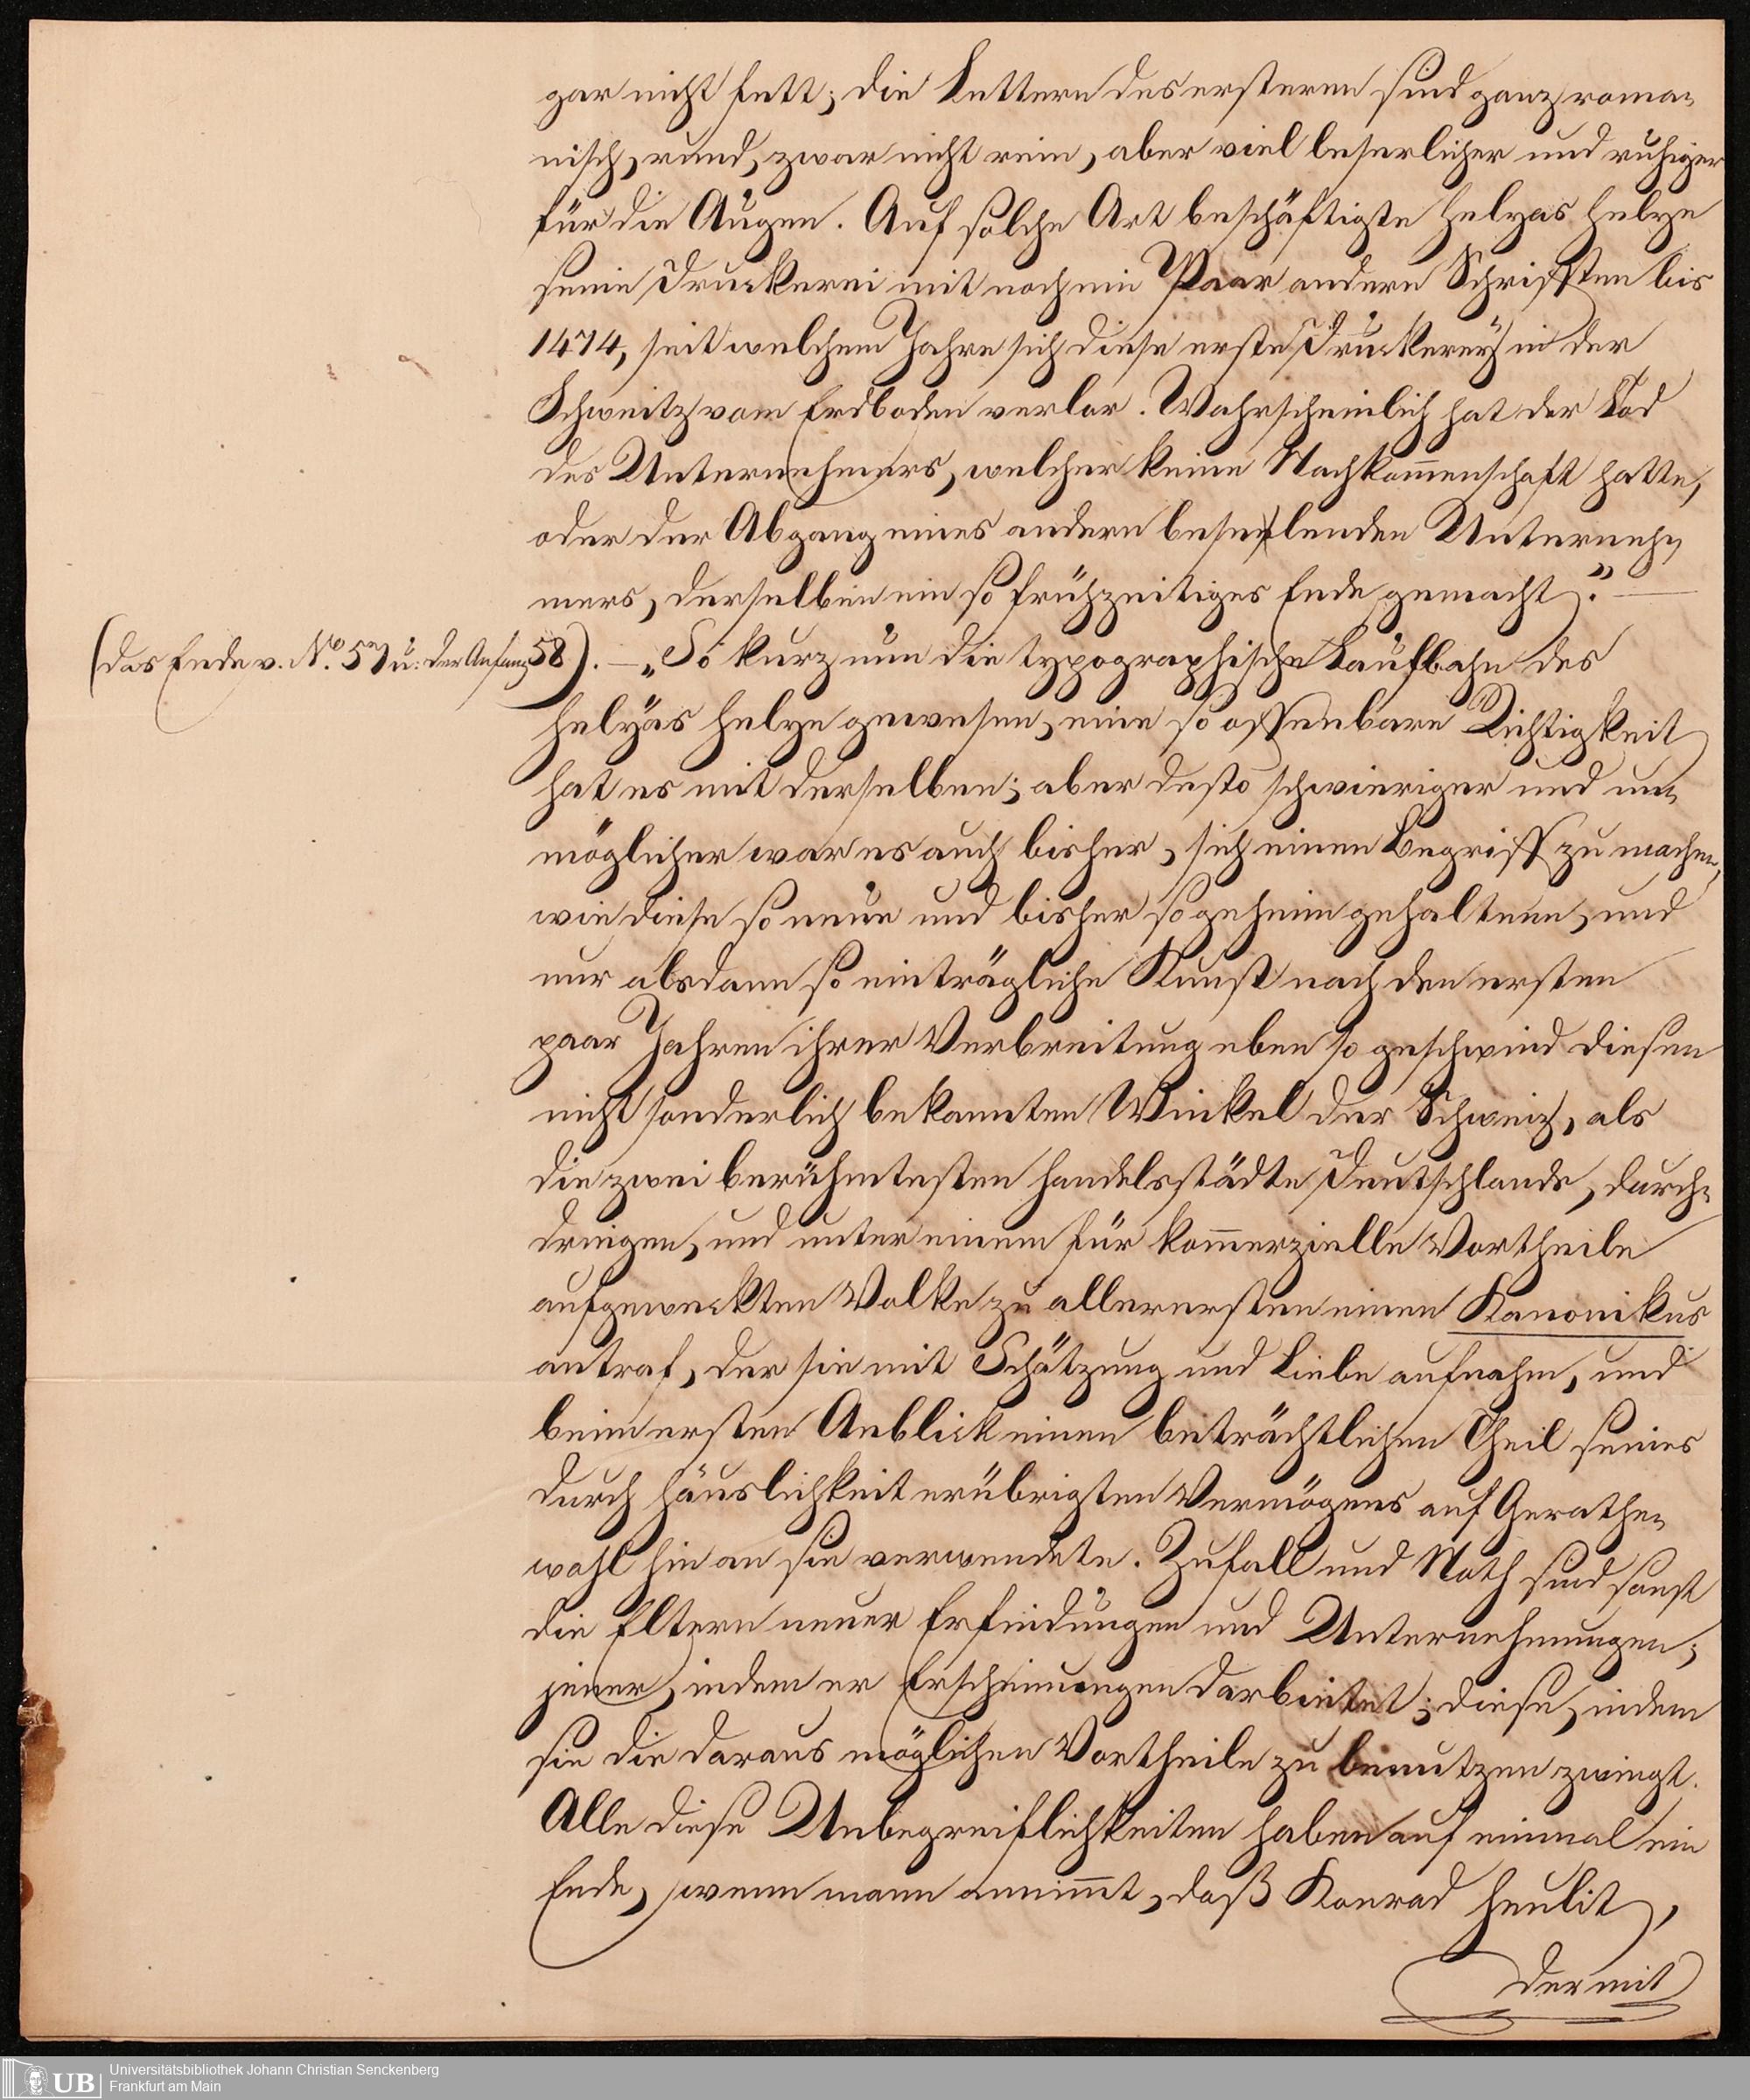 gar nicht fett; die Lettern des ersteren sind ganz roma-
nisch, rund, zwar nicht rein, aber viel leserlicher und ruhiger
für die Augen. Auf solche Art beschäftigte Helyas Helye
seine Druckerei mit noch ein Paar andern Schriften bis
1474, seit welchem Jahre sich diese erste Druckerey in der
Schweitz vom Erdboden verlor. Wahrscheinlich hat der Tod
des Unternehmers, welcher keine Nachkom̅enschaft hatte,
oder der Abgang eines andern beseelenden Unterneh-
mers, derselben ein so frühzeitiges Ende gemacht." —
(das Ende v. No. 57 u: der Anfang 58). — „So kurz nun die typographische Laufbahn des
Helyas Helye gewesen, eine so offenbare Richtigkeit
hat es mit derselben; aber desto schwieriger und un-
möglicher war es auch bisher, sich einen Begriff zu machen,
wie diese so neue und bisher so geheim gehaltene, und
nur alsdann so einträgliche Kunst nach den ersten
paar Jahren ihrer Verbreitung eben so geschwind diesen
nicht sonderlich bekannten Winkel der Schweiz, als
die zwei berühmtesten Handelsstädte Deutschlands, durch-
dringen, und unter einem für kom̅erzielle Vortheile
aufgeweckten Volke zu allerersten einen Kanonikus
antraf, der sie mit Schätzung und Liebe aufnahm, und
beim ersten Anblick einen beträchtlichen Theil seines
durch Häuslichkeit erübrigten Vermögens auf Gerathe-
wohl hin an sie verwendete. Zufall und Noth sind sonst
die Eltern neuer Erfindungen und Unternehmungen;
jener, indem er Erscheinungen darbietet; diese, indem
sie die daraus möglichen Vortheile zu benutzen zwingt.
Alle diese Unbegreiflichkeiten haben auf einmal ein
Ende, wenn mann annim̅t, daß Konrad Heulit,
der mit
UB Universitätsbibliothek Johann Christian Senckenberg
Frankfurt am Main